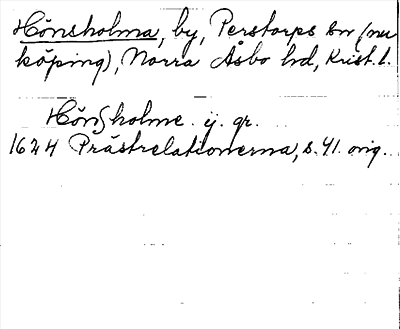 Hönsholma, by, Perstorps sn (nu
köping), Norra Åsbo hd, Krist. l.
Hönßholme. ij. gr.
1624 Prästrelationerna, s. 41. orig.